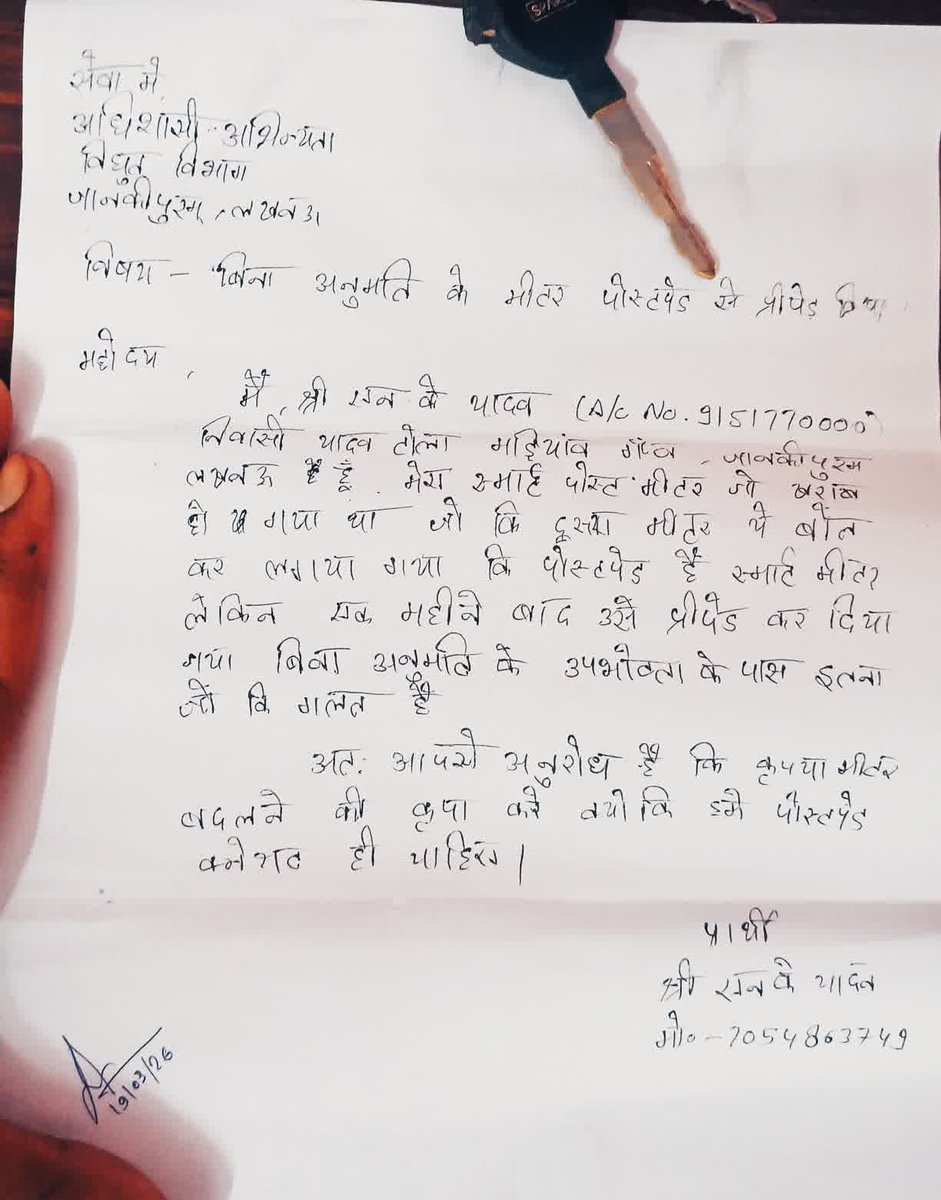 सेवा मे,
अधिशासी अभिन्यता
विधुत विभाग
जानकीपुरम्, लखनऊ
विषय - बिना अनुमति के मीटर पोस्टपेड से प्रीपेड
महोदय,
मैं, श्री एन के यादव (A/c No. 9151770000)
निवासी यादव टोला मड़ियांव जानकीपुरम
लखनऊ है हूँ. मेरा स्मार्ट पोस्ट मीटर जो खराब
हो गया था जो कि दूसरा मीटर ये बोल
कर लगाया गया कि पोस्टपेड है स्मार्ट मीटर
लेकिन एक महीने बाद उसे प्रीपेड कर दिया
गया बिना अनुमति के उपभोक्ता के पास इतना
जो कि गलत है
अतः आपसे अनुरोध है कि कृपया मीटर
बदलने की कृपा करे क्योकि हमे पोस्टपेड
कनेशन ही चाहिए।
प्रार्थी
श्री एन के यादव
मो० - 7054863749
19/03/26